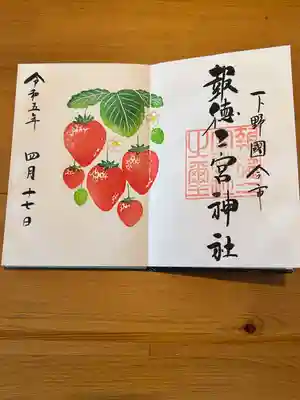 下野國今市
報徳二宮神社
令和五年 四月十七日